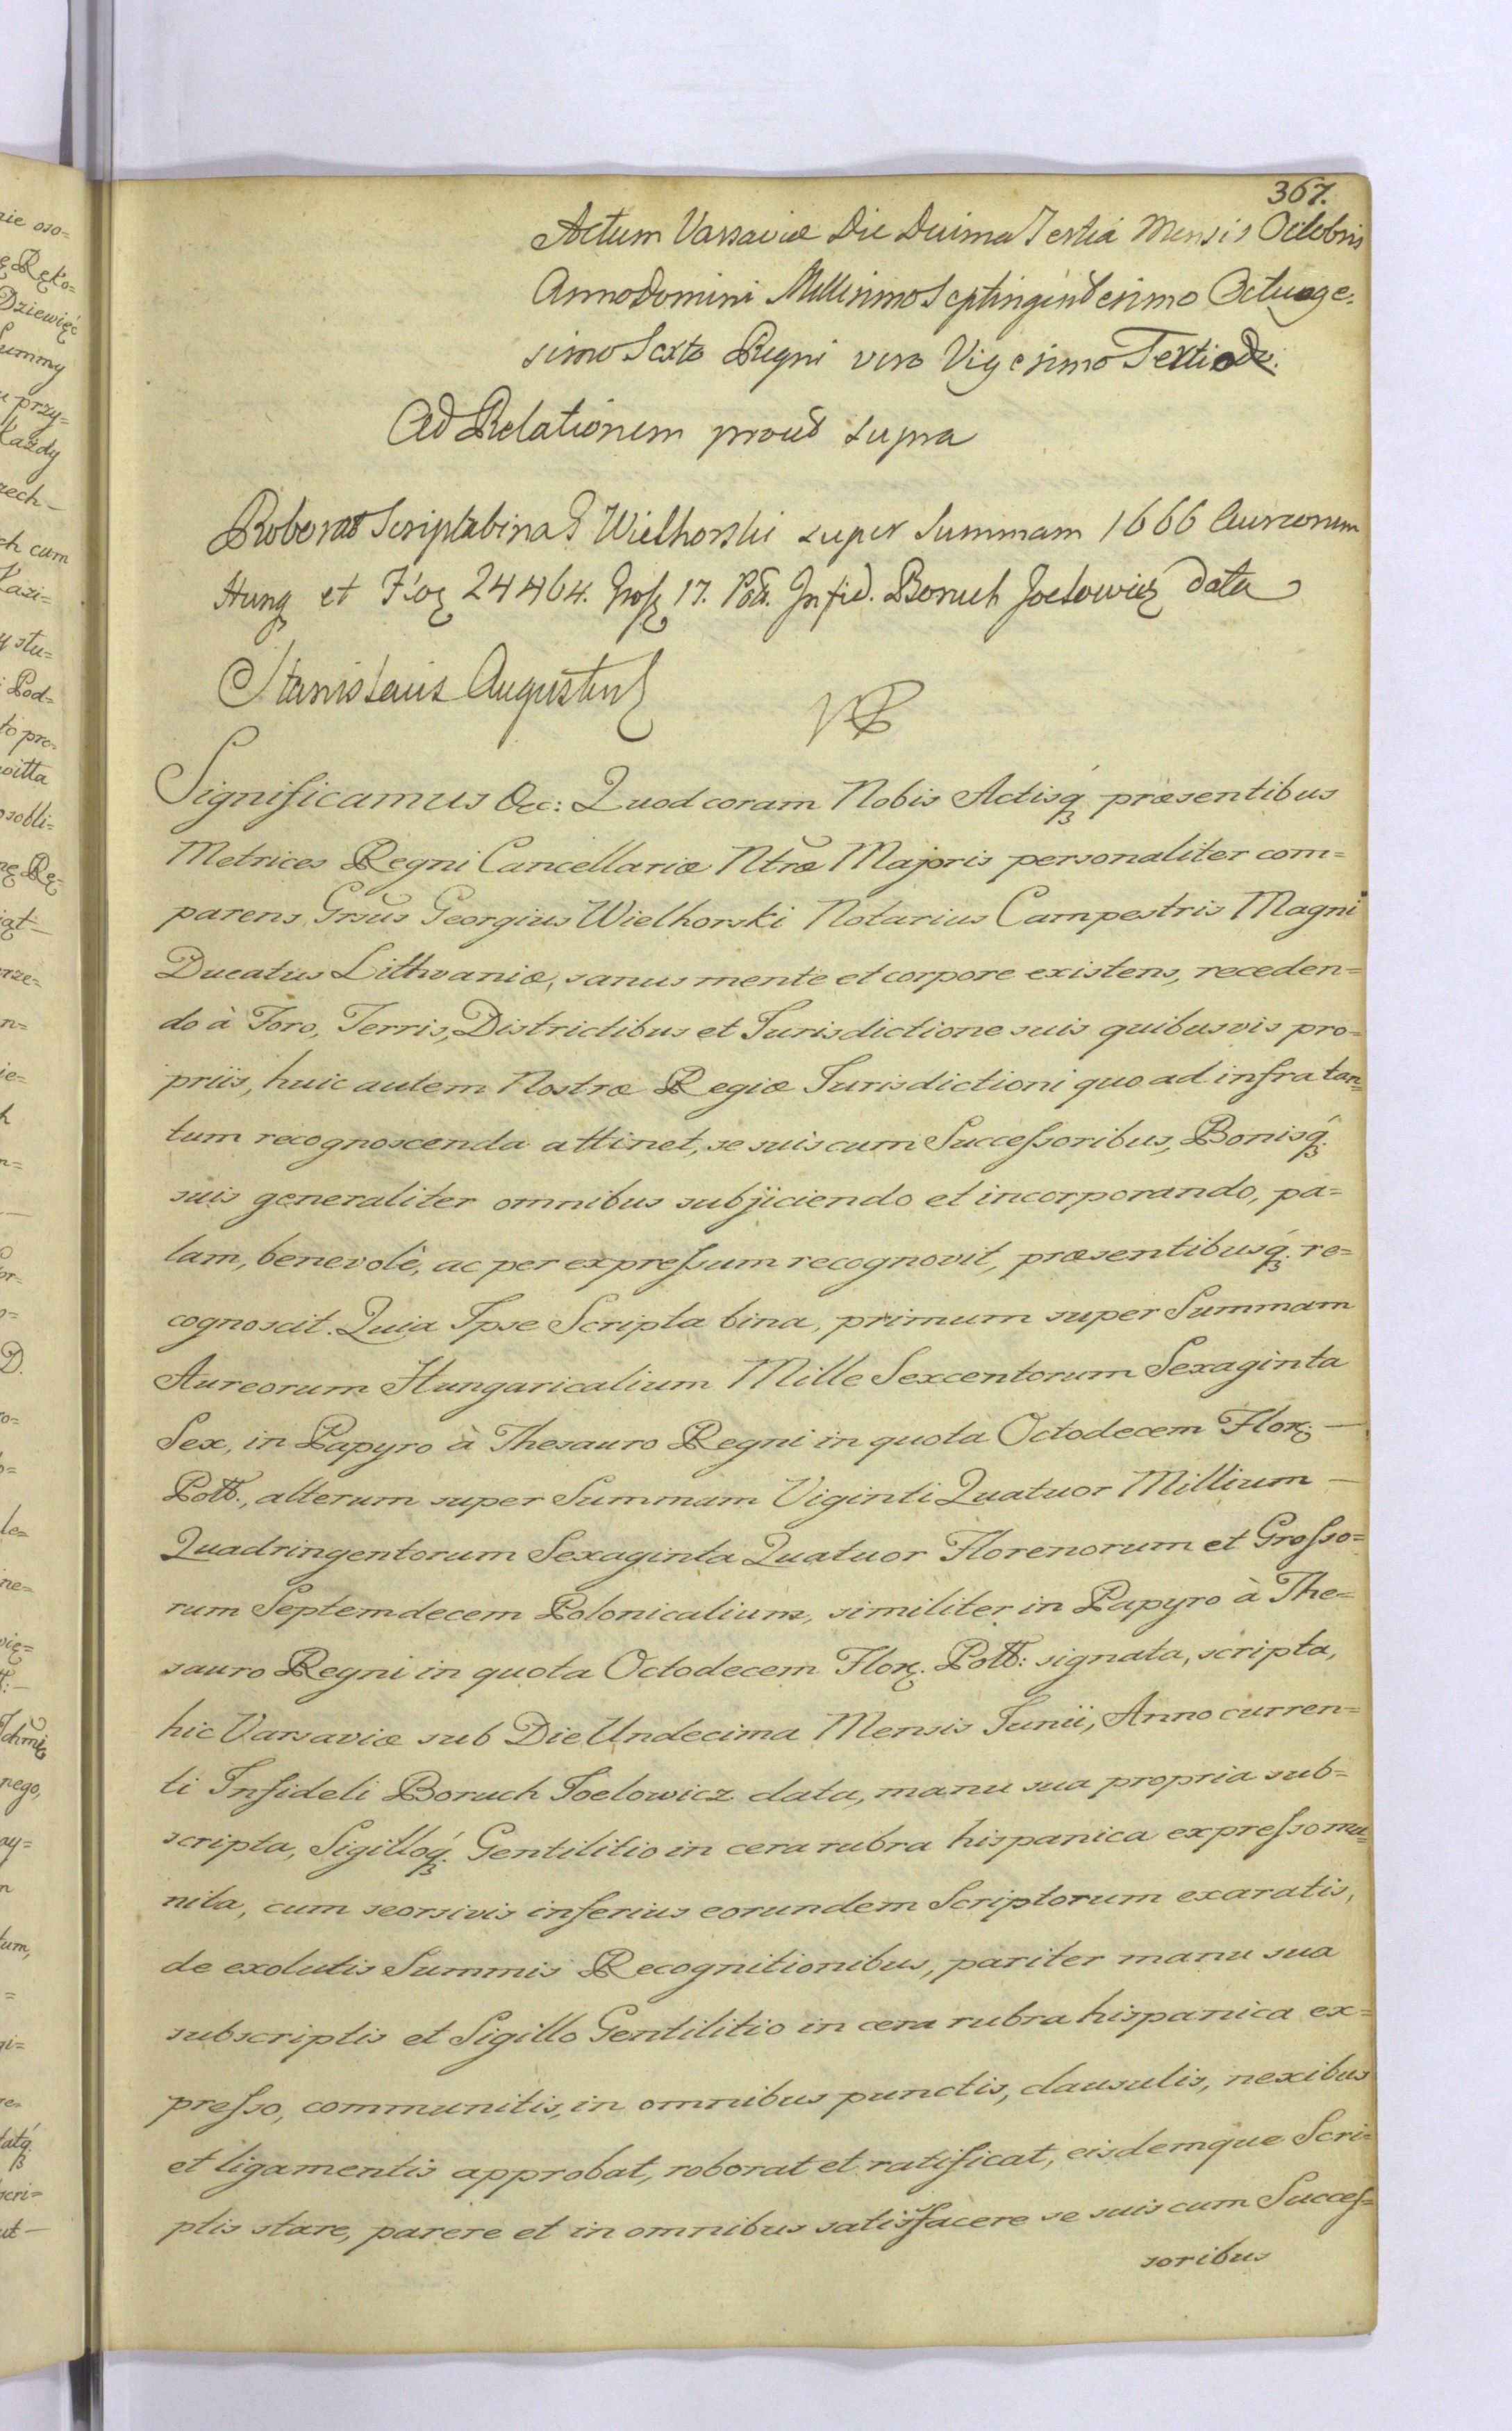 367.
Actum Varsaviæ Die Decima Tertia Mensis Octobris
Anno Domini Millesimo Septingentesimo Octuage=
simo Sexto Regni vero Vigesimo Tertio
Ad Relationem prout supra
Roborat Scripta bina G Wielhorski super Summam 1666 Aureorum
Hung et Flor 24464. Gross 17. Poll. Infid. Boruch Joelowicz data
Stanislaus Augustus
Significamus &c: Quod coram Nobis Actisq́ præsentibus
Metrices Regni Cancellariæ Ntræ Majoris personaliter com=
parens Grsus Georgius Wielhorski Notarius Campestris Magni
Ducatus Lithvaniæ, sanus mente et corpore existens, receden=
do à Foro, Terris, Districtibus et Jurisdictione suis quibusvis pro=
priis, huic autem Nostræ Regiæ Jurisdictioni quo ad infra tan=
tum recognoscenda attinet, se suis cum Successoribus, Bonisq́.
suis generaliter omnibus subjiciendo et incorporando, pa=
lam, benevolè, ac per expressum recognovit, præsentibusq́. re=
cognoscit. Quia Ipse Scripta bina, primum super Summam
Aureorum Hungaricalium Mille Sexcentorum Sexaginta
Sex, in Papyro à Thesauro Regni in quota Octodecem Flor. —
Poll., alterum super Summam Viginti Quatuor Millium —
Quadringentorum Sexaginta Quatuor Florenorum et Grosso=
rum Septemdecem Polonicalium, similiter in Papyro à The=
sauro Regni in quota Octodecem Flor. Poll: signata, scripta,
hic Varsaviæ sub Die Undecima Mensis Junii, Anno curren=
ti Infideli Boruch Joelowicz data, manu sua propria sub=
scripta, Sigilloq́. Gentilitio in cera rubra hispanica expresso mu=
nita, cum seorsivis inferius eorundem Scriptorum exaratis,
de exolutis Summis Recognitionibus, pariter manu sua
subscriptis et Sigillo Gentilitio in cera rubra hispanica ex=
presso, communitis, in omnibus punctis, clausulis, nexibus
et ligamentis approbat, roborat et ratificat, eisdemque Scri=
ptis stare, parere et in omnibus satisfacere se suis cum Succes=
soribus